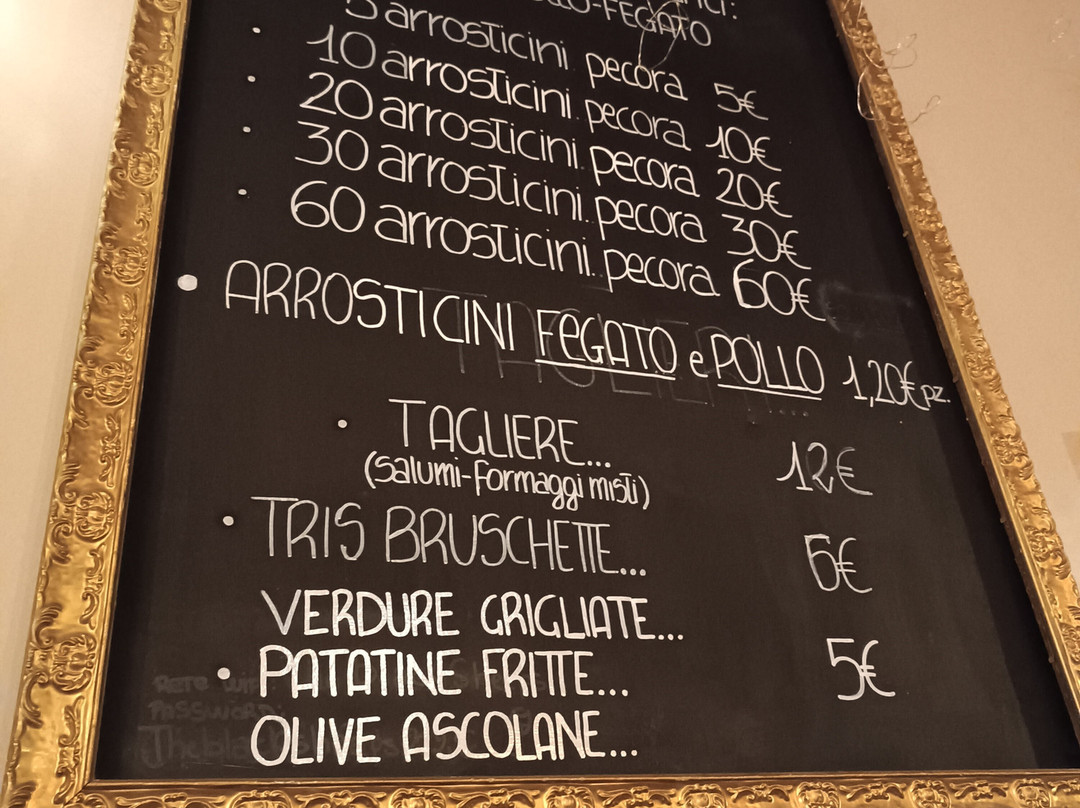 POLLO-FEGATO
5 arrosticini pecora 5€
10 arrosticini pecora 10€
20 arrosticini pecora 20€
30 arrosticini pecora 30€
60 arrosticini pecora 60€
ARROSTICINI FEGATO e POLLO 1,20€ pz.
TAGLIERE... 12€
(salumi-formaggi misti)
TRIS BRUSCHETTE... 6€
VERDURE GRIGLIATE...
PATATINE FRITTE... 5€
OLIVE ASCOLANE...
RETE WIFI
PASSWORD: